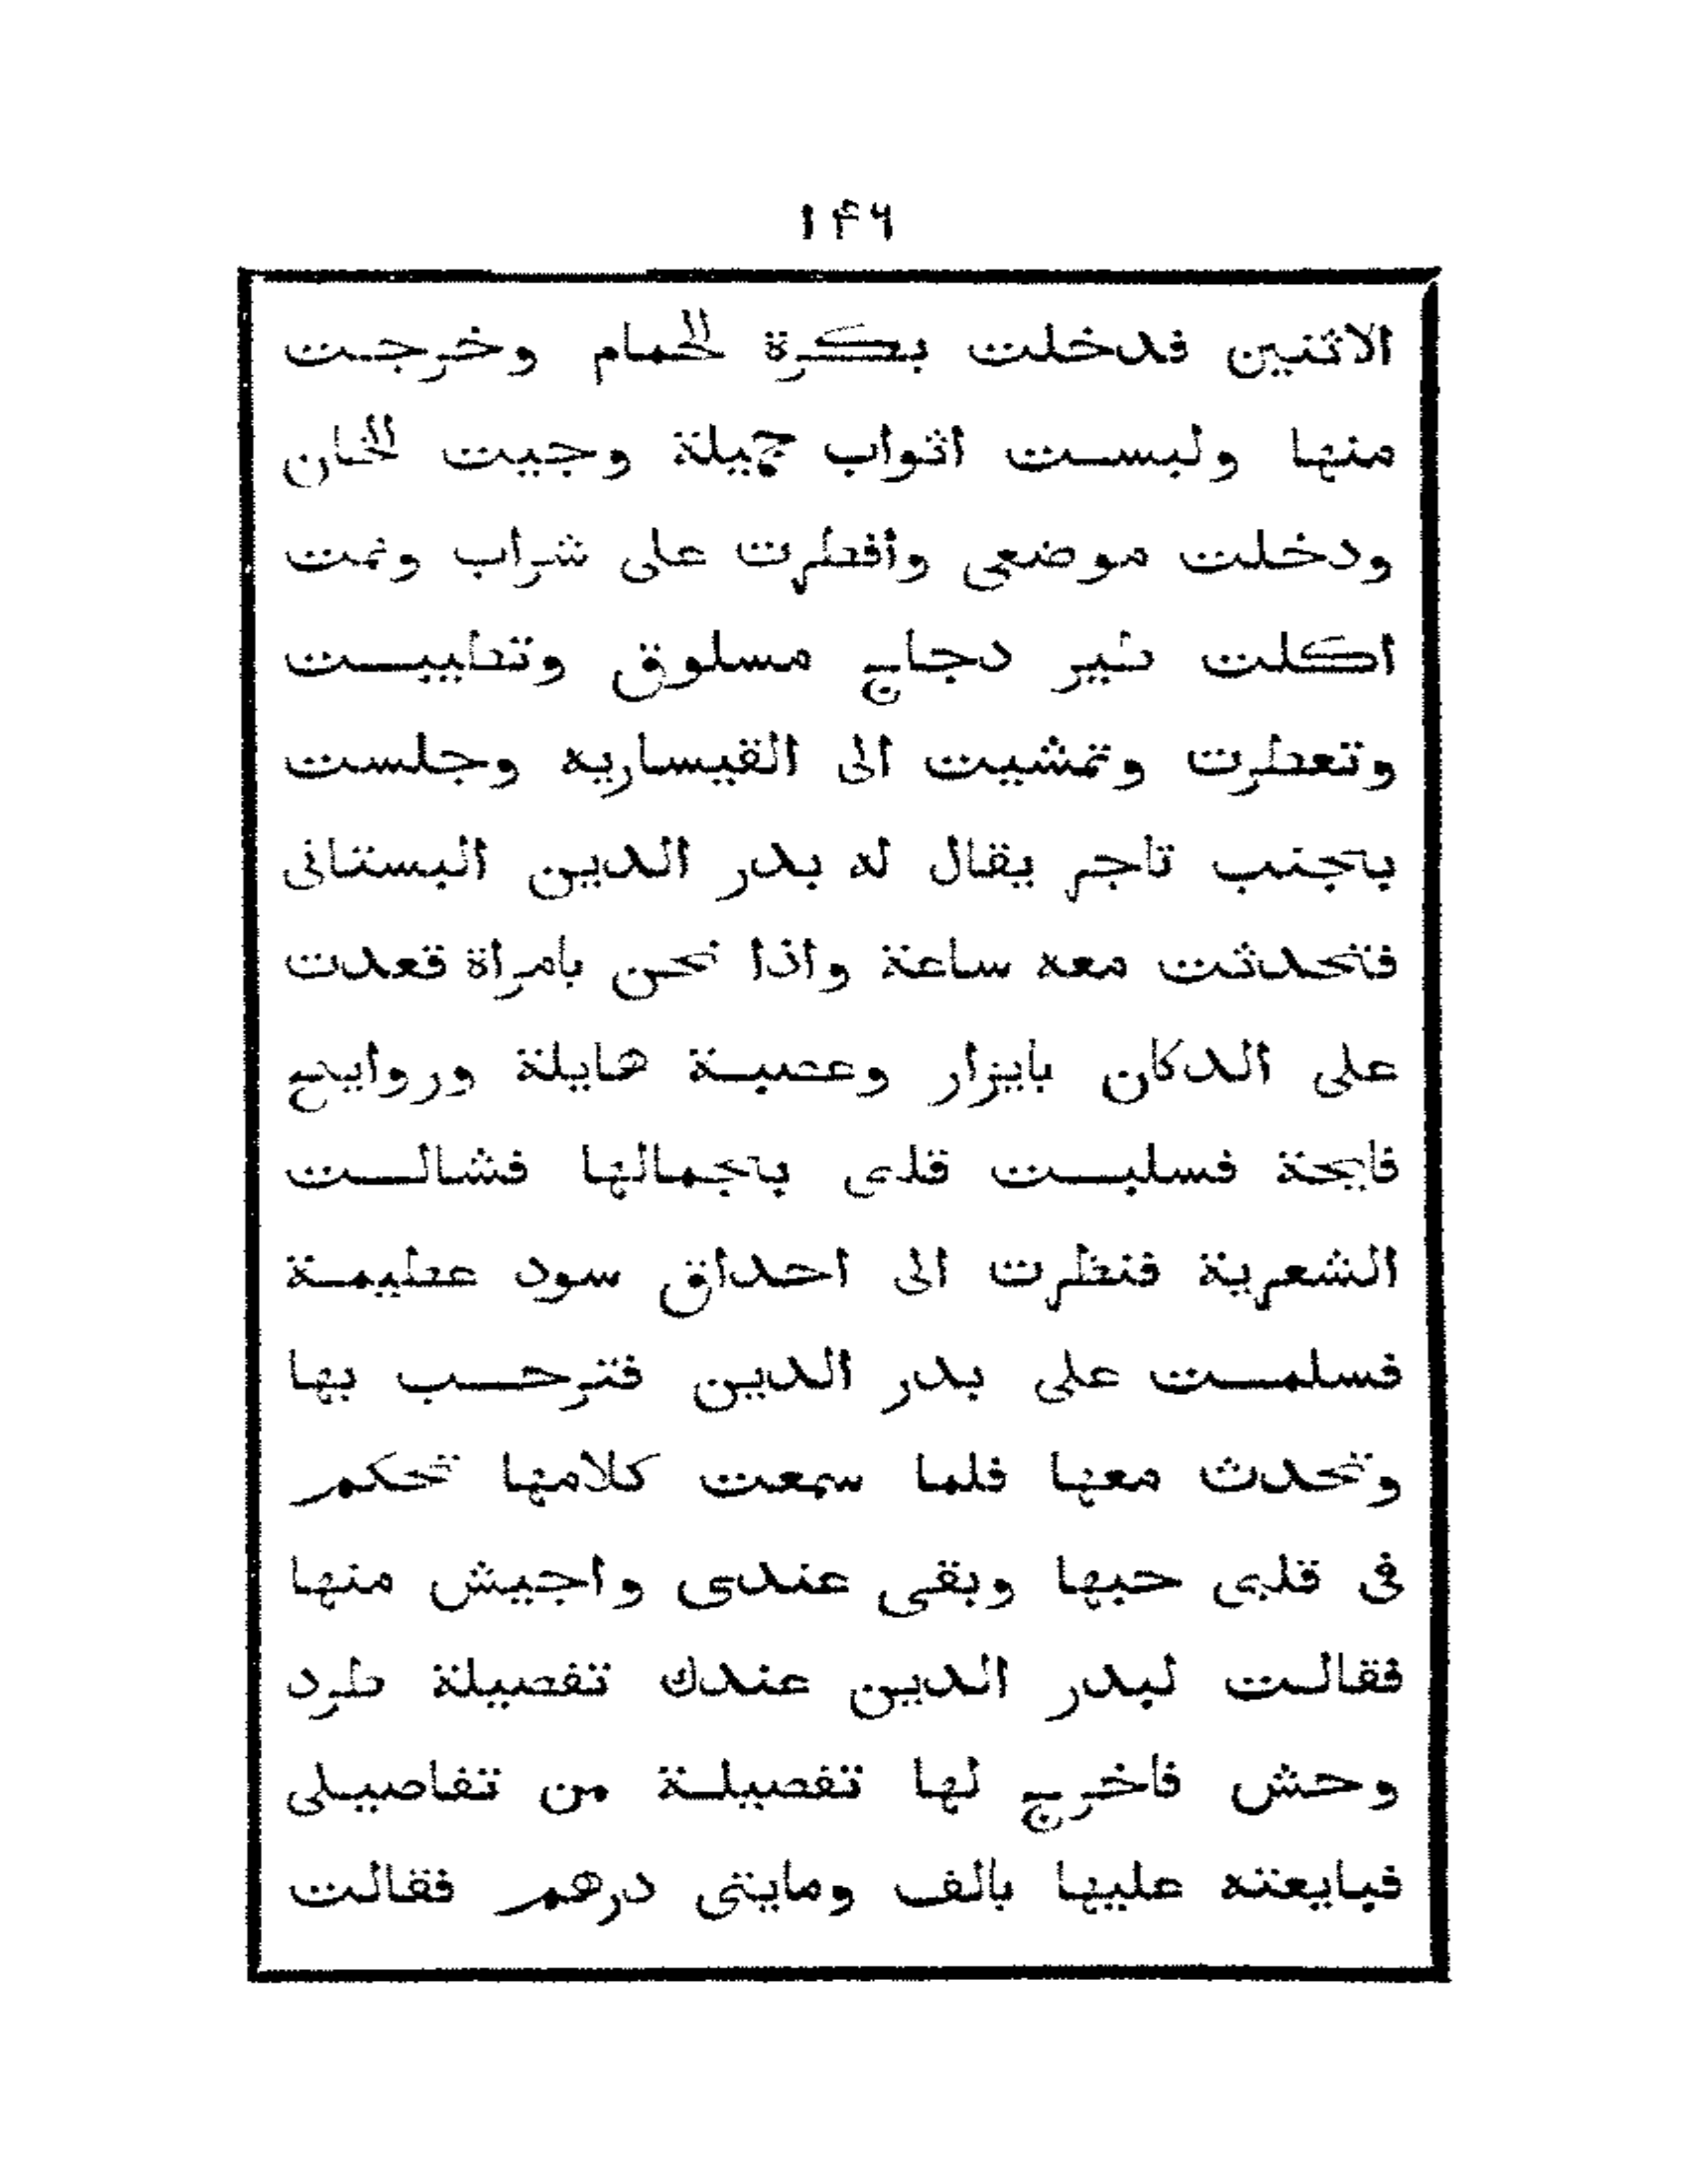 ١٤٦
الاثنين فدخلت بكرة للحمام وخرجت
منها ولبست اثواب جميلة وجيت للخان
ودخلت موضعى وافطرت على شراب ونمت
اكلت طير دجاج مسلوق وتطيبت
وتعطرت وتمشيت الى القيساريه وجلست
بجنب تاجر يقال له بدر الدين البستانى
فتحدثت معه ساعة واذا نحن بامراة قعدت
على الدكان بايزار وعصبة هايلة وروايح
فايحة فسلبت قلبى بجمالها فشالت
الشعرية فنظرت الى احداق سود عظيمة
فسلمت على بدر الدين فترحب بها
وتحدث معها فلما سمعت كلامها تحكم
فى قلبى حبها وبقى عندى واجيش منها
فقالت لبدر الدين عندك تفصيلة طرد
وحش فاخرج لها تفصيلة من تفاصيلى
فبايعته عليها بالف ومايتى درهم فقالت